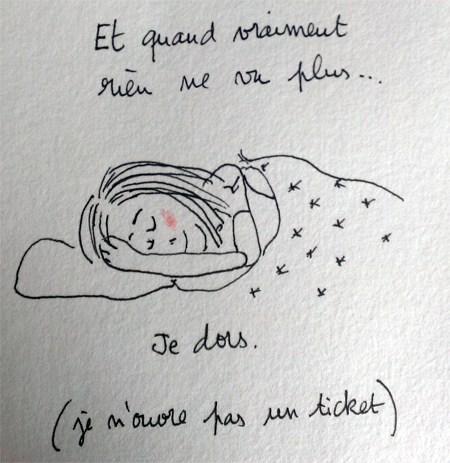 Et quand vraiment
rien ne va plus...
Je dors.
(je n'ouvre pas un ticket)